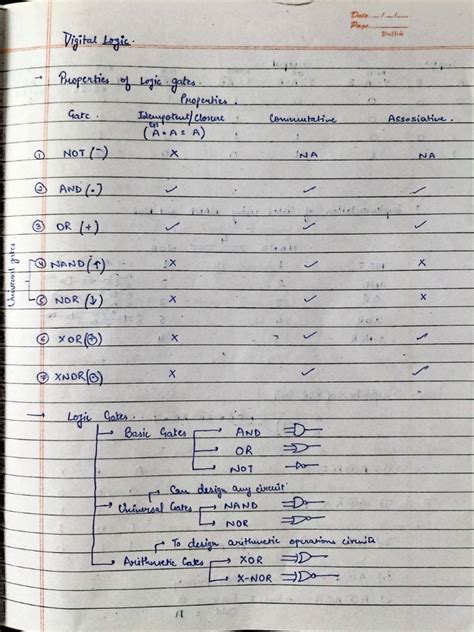 Date __/__/__
Page
Digital Logic.
→ Properties of Logic gates.
Properties.
Gate. Idempotent/Closure Commutative Associative
(A • A = A)
① NOT (-) X NA NA
② AND (.) ✓ ✓ ✓
③ OR (+) ✓ ✓ ✓
Universal gates
④ NAND (↑) X ✓ X
⑤ NOR (↓) X ✓ X
⑥ XOR X ✓ ✓
⑦ XNOR X ✓ ✓
→ Logic Gates.
→ Basic Gates → AND
→ OR
→ NOT
→ Can design any circuit
→ Universal Gates → NAND
→ NOR
→ To design arithmetic operations circuits
→ Arithmetic Gates → XOR
→ X-NOR